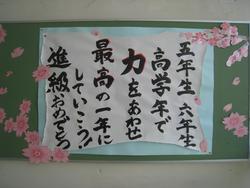 五年生 六年生
高学年で
力をあわせ
最高の一年に
していこう!
進級おめでとう